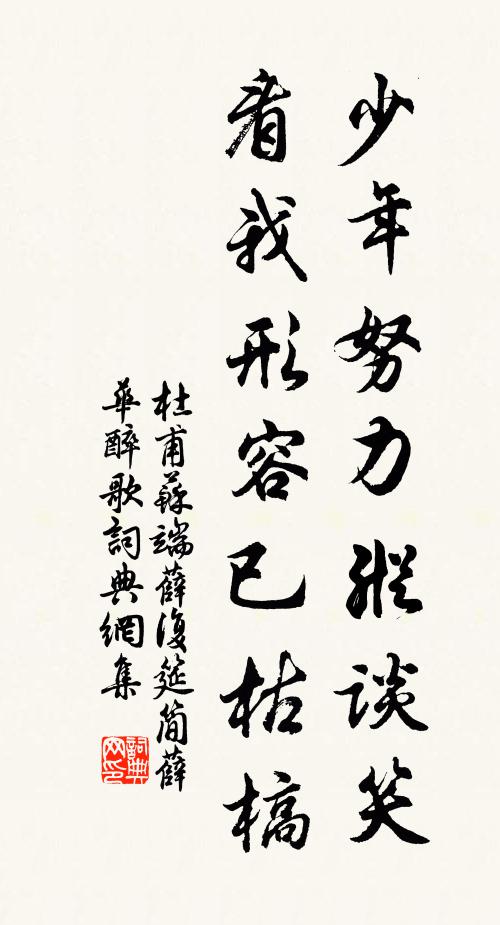 少年努力縱談笑
看我形容已枯槁
杜甫蘇端薛復筵簡薛
華醉歌詞典網集
詞典网印